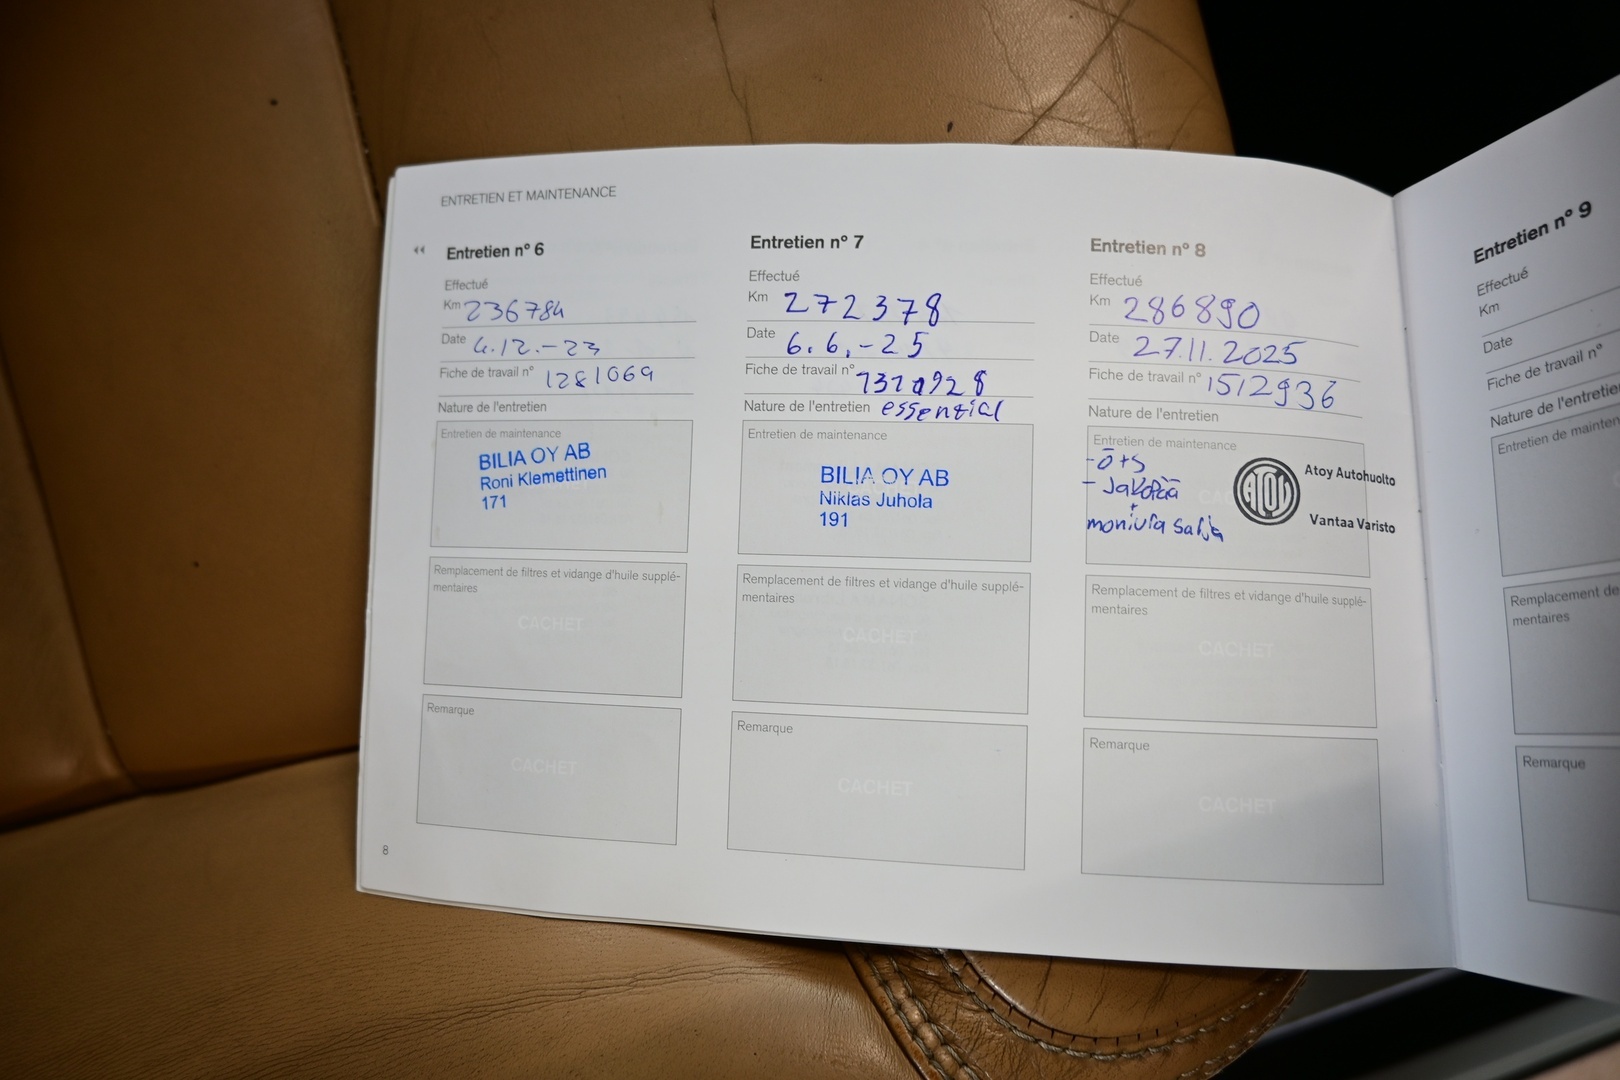 ENTRETIEN ET MAINTENANCE
Entretien n° 6
Effectué
Km 236784
Date 4.12.-23
Fiche de travail n° 1281069
Nature de l'entretien
Entretien de maintenance
BILIA OY AB
Roni Klemettinen
171
Remplacement de filtres et vidange d'huile supplé-
mentaires
CACHET
Remarque
CACHET
8
Entretien n° 7
Effectué
Km 272378
Date 6.6.-25
Fiche de travail n°
Nature de l'entretien essential
Entretien de maintenance
BILIA OY AB
Niklas Juhola
191
Remplacement de filtres et vidange d'huile supplé-
mentaires
CACHET
Remarque
CACHET
Entretien n° 8
Effectué
Km 286890
Date 27.11.2025
Fiche de travail n° 1512936
Nature de l'entretien
Entretien de maintenance
- Ö+S
- Jakopää
+
moniura
ATOY
Atoy Autohuolto
Vantaa Varisto
Remplacement de filtres et vidange d'huile supplé-
mentaires
CACHET
Remarque
CACHET
Entretien n° 9
Effectué
Km
Date
Fiche de travail n°
Nature de l'entretien
Entretien de
Remplacement de
mentaires
Remarque